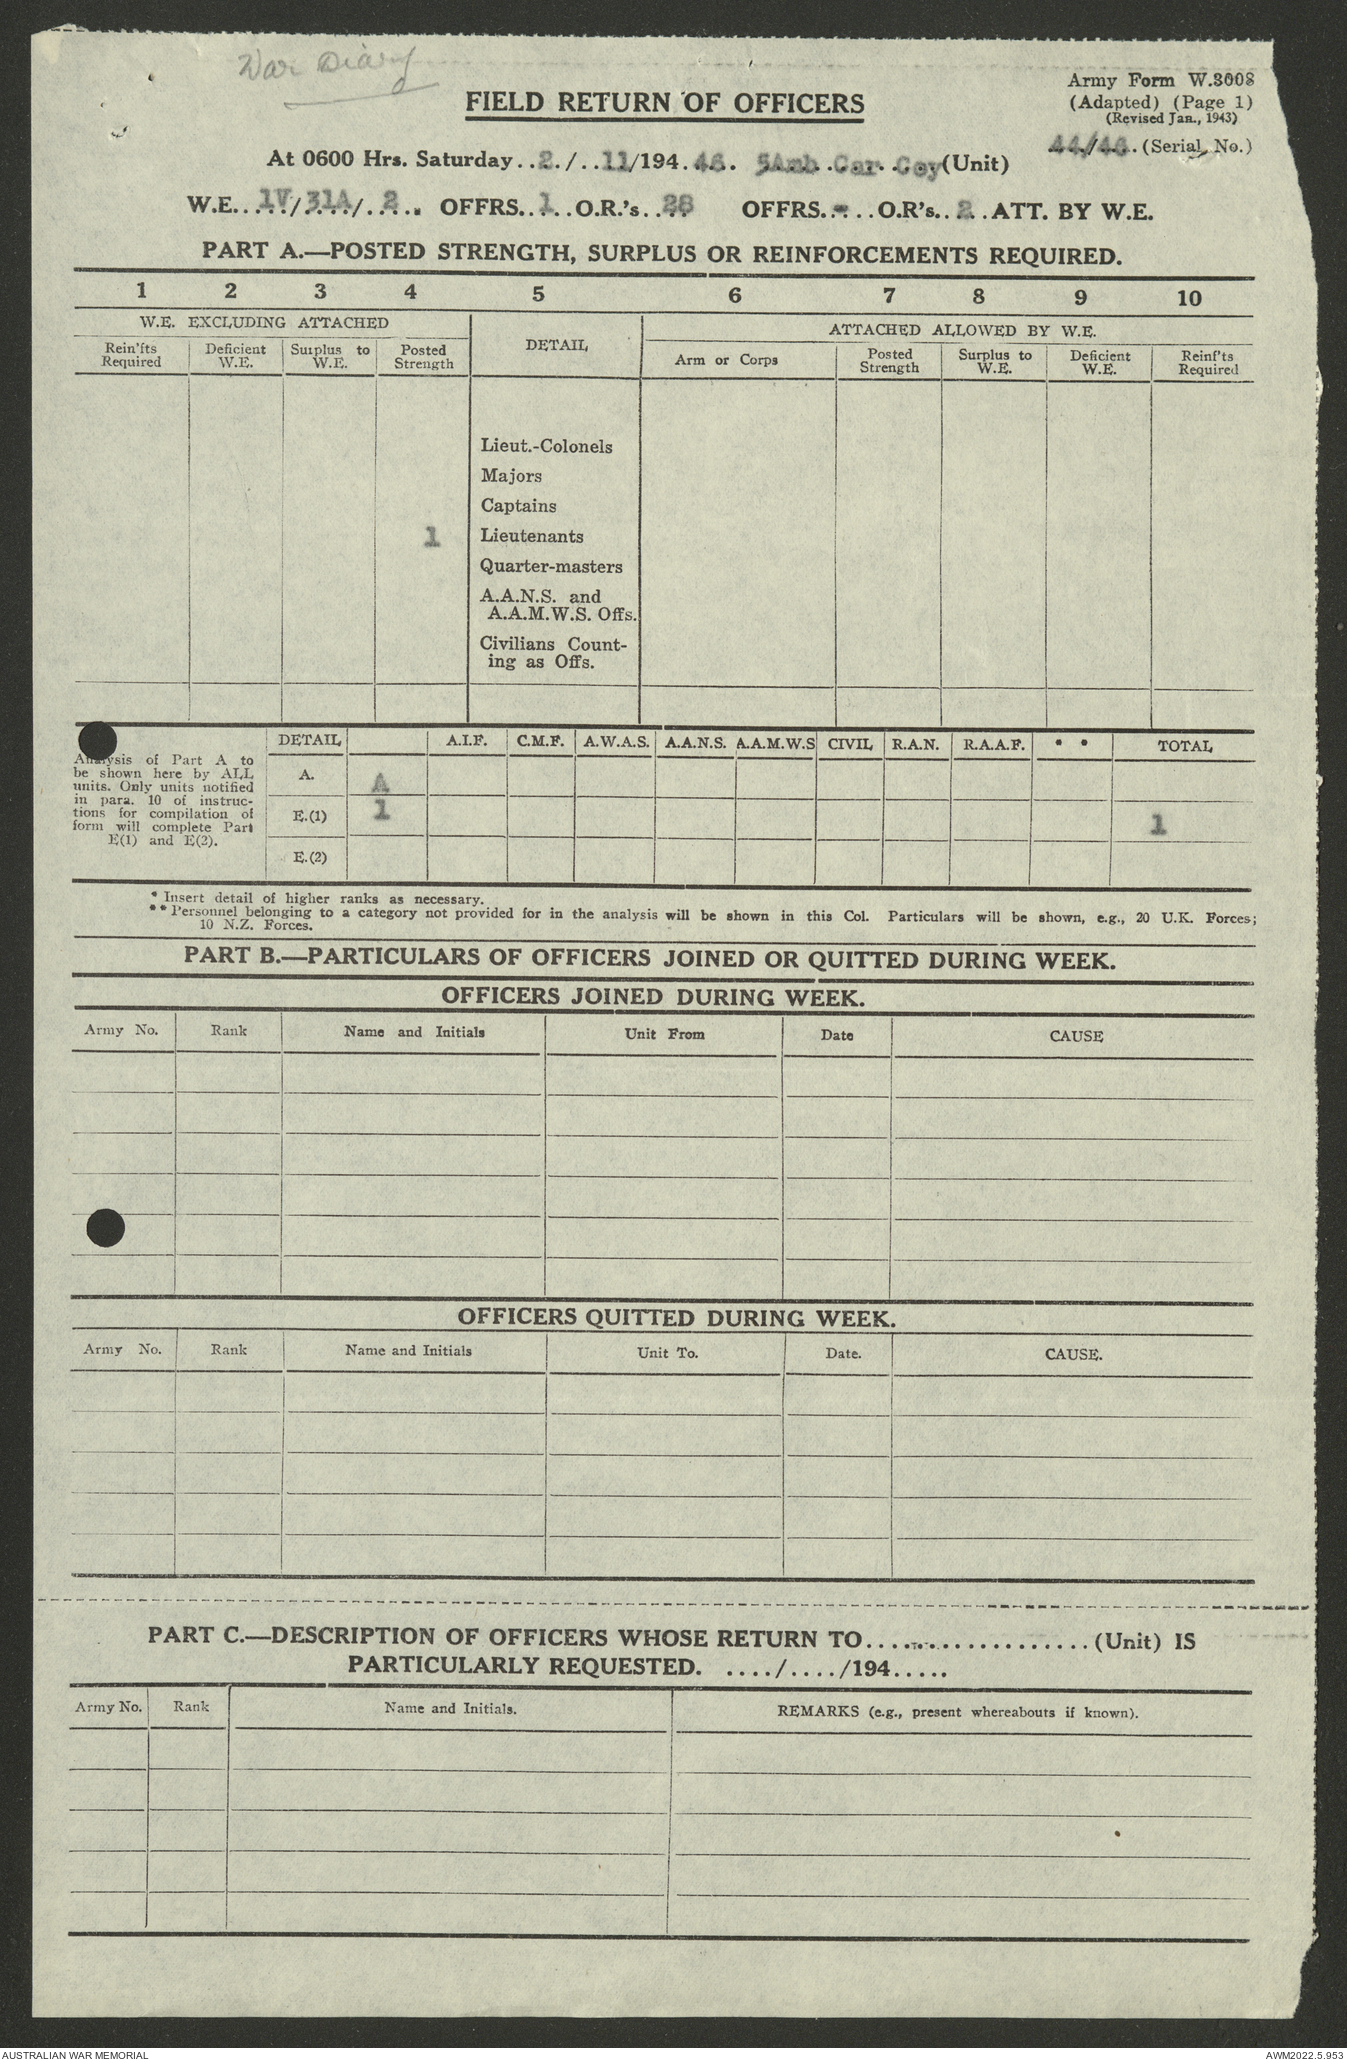 War Diary
Army Form W.3008
(Adapted) (Page 1)
(Revised Jan., 1943)
FIELD RETURN OF OFFICERS
44/46. (Serial No.)
At 0600 Hrs. Saturday..2./..11/194.46.. 5Amb.Car.Coy(Unit)
W.E....1V/31A/..2... OFFRS..1..O.R.'s..28 OFFRS..-...O.R's..2..ATT. BY W.E.
PART A.—POSTED STRENGTH, SURPLUS OR REINFORCEMENTS REQUIRED.
1 2 3 4 5 6 7 8 9 10
W.E. EXCLUDING ATTACHED DETAIL ATTACHED ALLOWED BY W.E.
Rein'fts Required Deficient W.E. Surplus to W.E. Posted Strength Arm or Corps Posted Strength Surplus to W.E. Deficient W.E. Reinf'ts Required
Lieut.-Colonels
Majors
Captains
1 Lieutenants
Quarter-masters
A.A.N.S. and
A.A.M.W.S. Offs.
Civilians Count-
ing as Offs.
DETAIL A.I.F. C.M.F. A.W.A.S. A.A.N.S. A.A.M.W.S CIVIL R.A.N. R.A.A.F. * * TOTAL
Analysis of Part A to
be shown here by ALL
units. Only units notified
in para. 10 of instruc-
tions for compilation of
form will complete Part
E(1) and E(2).
A. A
E.(1) 1 1
E.(2)
* Insert detail of higher ranks as necessary.
** Personnel belonging to a category not provided for in the analysis will be shown in this Col. Particulars will be shown, e.g., 20 U.K. Forces;
10 N.Z. Forces.
PART B.—PARTICULARS OF OFFICERS JOINED OR QUITTED DURING WEEK.
OFFICERS JOINED DURING WEEK.
Army No. Rank Name and Initials Unit From Date CAUSE
OFFICERS QUITTED DURING WEEK.
Army No. Rank Name and Initials Unit To. Date. CAUSE.
PART C.—DESCRIPTION OF OFFICERS WHOSE RETURN TO.................... (Unit) IS
PARTICULARLY REQUESTED. ..../..../194.....
Army No. Rank Name and Initials. REMARKS (e.g., present whereabouts if known).
AUSTRALIAN WAR MEMORIAL
AWM2022.5.953